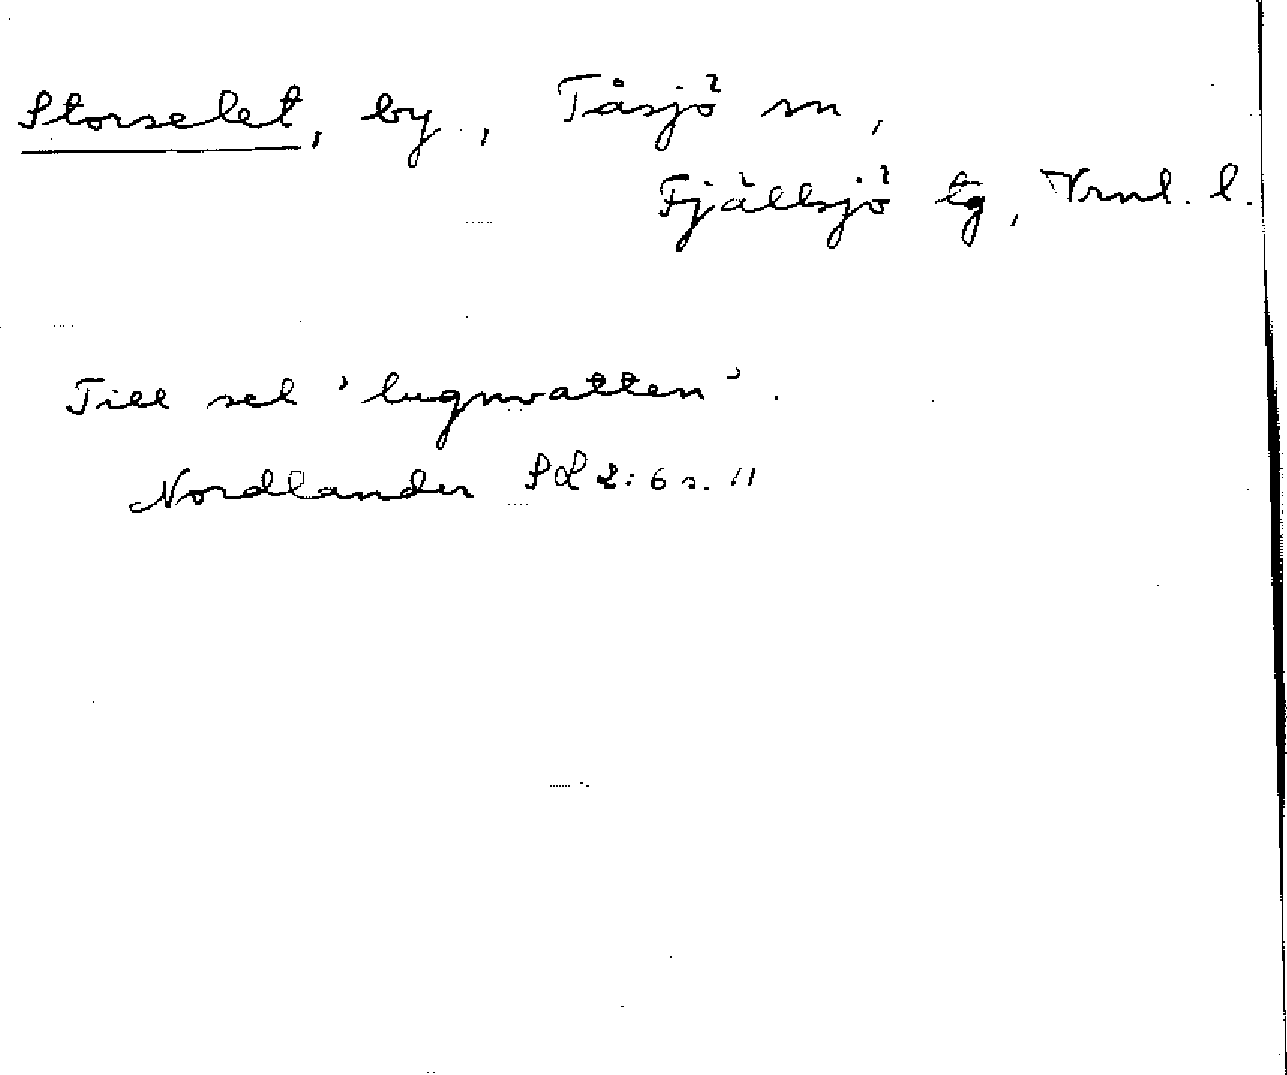 Storselet, by, Tåsjö sn,
Fjällsjö tg, Vrnl. l.
Till sel 'lugnvatten'.
Nordlander SL 2:6 s. 11